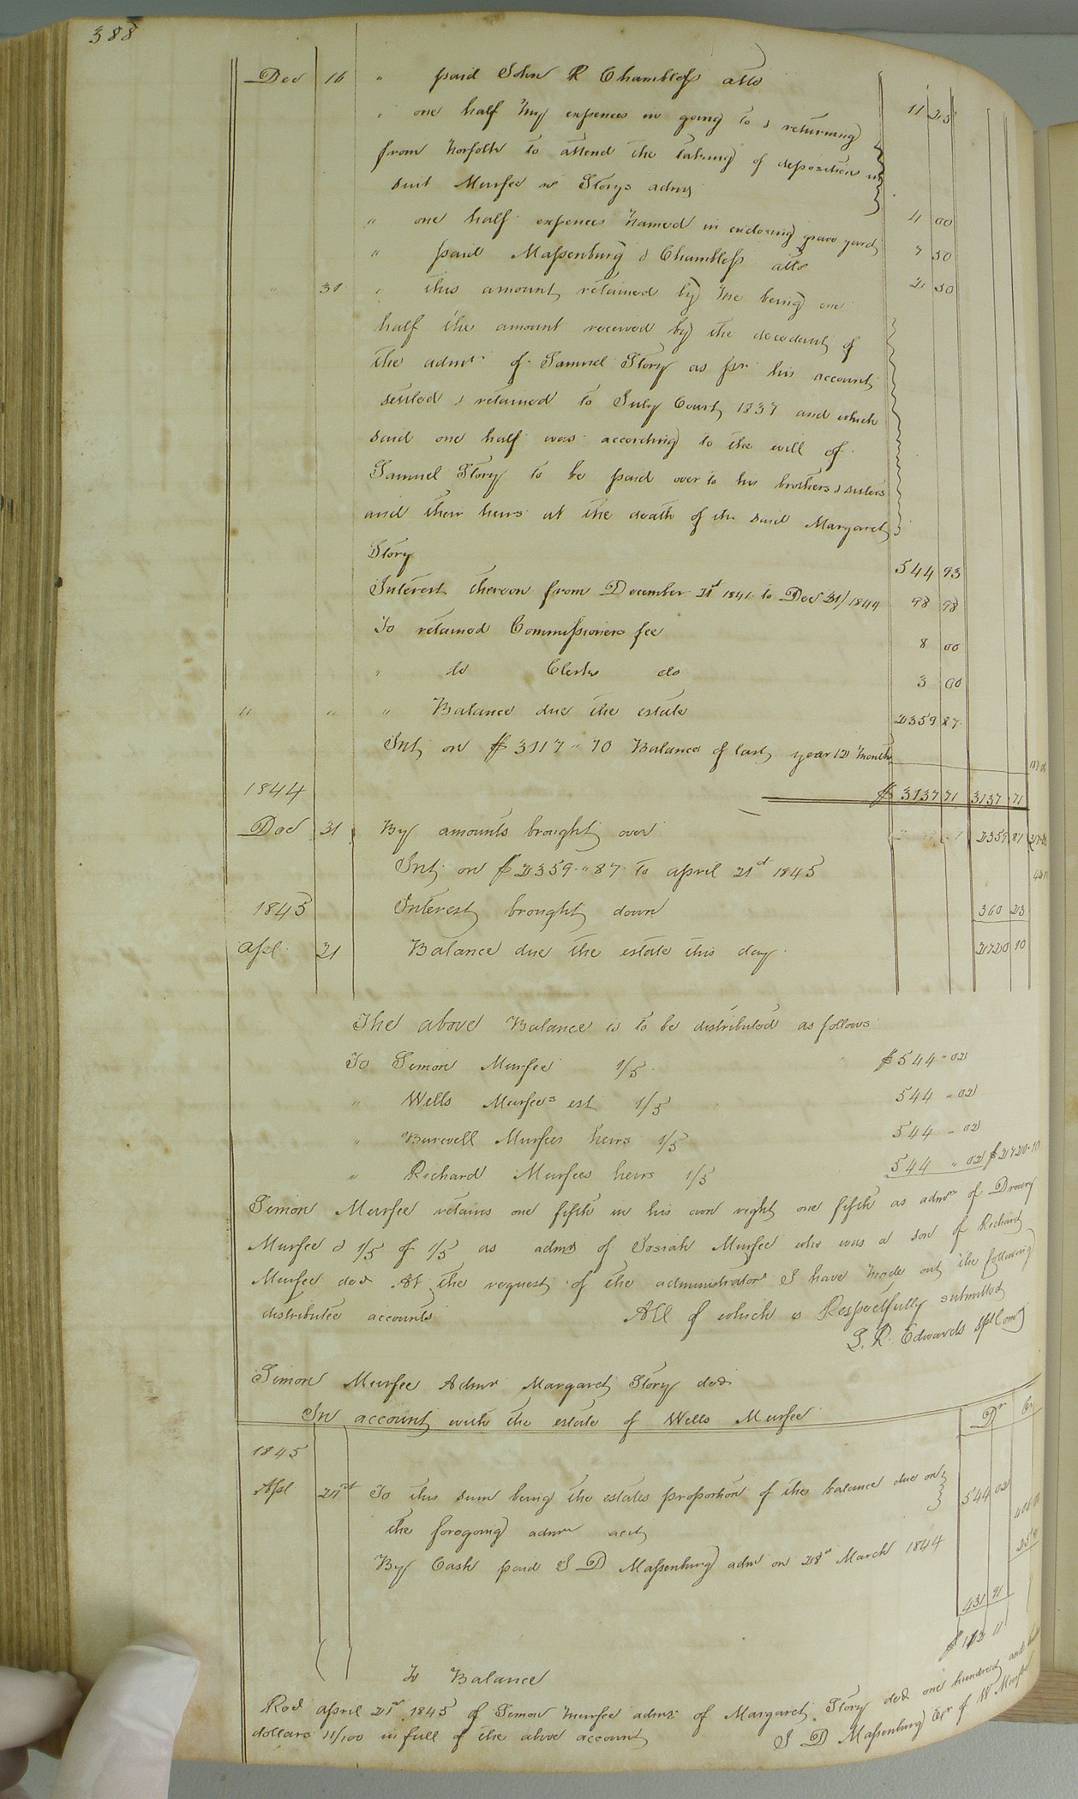 388
Dec 16 " paid John R Chambless atto 11 25
" one half my expences in going to & returning
from Norfolk to attend the taking of deposition in
suit Murfee vs Storys admr 4 00
" one half expences named in enclosing grave yard 7 50
" paid Massenburg & Chambless atto 2 50
31 " this amount retained by me being one
half the amount received by the decedent of
the admr of Samuel Story as pr his account
settled & returned to July Court 1837 and which
said one half was according to the will of
Samuel Story to be paid over to his brothers & sisters
and their heirs at the death of the said Margaret
Story 544 93
Interest thereon from December 21st 1841 to Dec 31/1844 98 98
To retained Commissioners fee 8 00
" do Clerks do 3 00
" " " Balance due the estate 2359 87
Int on $3117 " 70 Balance of last year 12 months
1844 $ 3137 71 3137 71
Dec 31 By amounts brought over 2359 87
Int on $2359 " 87 to april 21st 1845
1845 Interest brought down 360 23
Apl 21 Balance due the estate this day 2720 10
The above Balance is to be distributed as follows
To Simon Murfee 1/5 $544 - 02
" Wells Murfees est 1/5 544 - 02
" Burwell Murfees heirs 1/5 544 - 02
" Richard Murfees heirs 1/5 544 " 02 $2720.10
Simon Murfee retains one fifth in his own right one fifth as admr of Drewry
Murfee & 1/5 of 1/5 as admr of Josiah Murfee who was a son of Richard
Murfee decd At the request of the administrator I have made out the following
distributee accounts All of which is Respectfully submitted
S. R. Edwards Spl Comr
Simon Murfee Admr Margaret Story decd
In account with the estate of Wells Murfee Dr Cr
1845
Apl 21st To this sum being the estates proportion of the balance due on
the foregoing admr acct 544 02
By Cash paid S D Massenburg admr on 28th March 1844
431 91
$ 112 11
To Balance
Recd april 21st 1845 of Simon Murfee admr of Margaret Story decd one hundred and
dollars 11/100 in full of the above account
S D Massenburg Exr of W Murfee